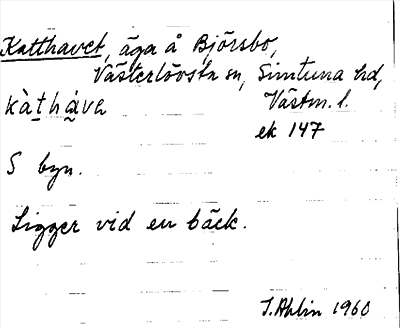 Katthavet, äga å Björsbo,
Västerlövsta sn, Simtuna hd,
kàt̲hà̤va Västm. l.
ek 147
S byn.
Ligger vid en bäck.
I. Ahlin 1960